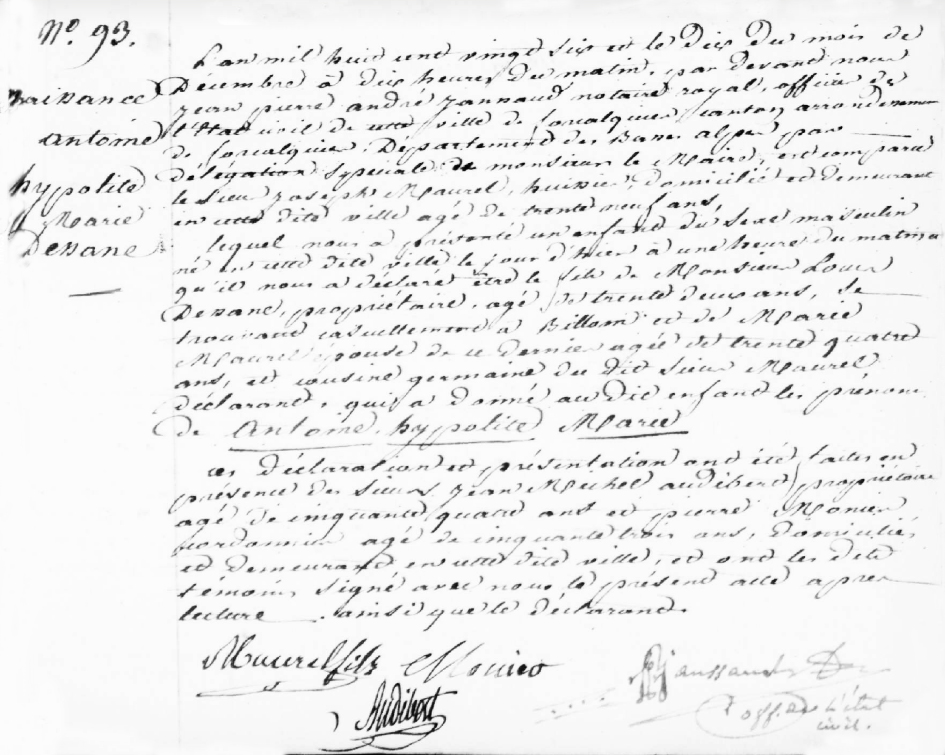 N.º 93.
Naissance
Antoine
hypolite
Marie
Dezane
L'an mil huit cent vingt six et le Dix du mois de
Décembre à dix heures du matin, par devant nous
jean pierre andré Jaunaud notaire royal, officier de
l'Etat civil de cette ville de forcalquier, canton, arrondissement
de forcalquier, Département des Basses alpes, par
délégation spéciale de monsieur le Maire, est comparu
le sieur joseph Maurel, huissier, domicilié et demeurant
en cette dite ville agé de trente neuf ans,
lequel nous a présenté un enfant du sexe masculin
né en cette dite ville le jour d'hier à une heure du matin
qu'il nous a déclaré être le fils de Monsieur Louis
Dezane, propriétaire, agé de trente deux ans, se
trouvant casuellement à Billom et de Marie
Maurel épouse de ce dernier agée de trente quatre
ans, et cousine germaine du dit sieur Maurel
déclarant, qui a donné au dit enfant les prénoms
de Antoine, hypolite Marie
ces déclaration et présentation ont été faites en
présence des sieurs jean Michel audibert, propriétaire
agé de cinquante quatre ans et pierre Monier
cordonnier agé de cinquante trois ans, domiciliés
et demeurant en cette dite ville, et ont les dits
témoins signé avec nous le présent acte après
lecture . ainsi que le déclarant.
Maurel fils Monier
Audibert
off. de l'état
civil.